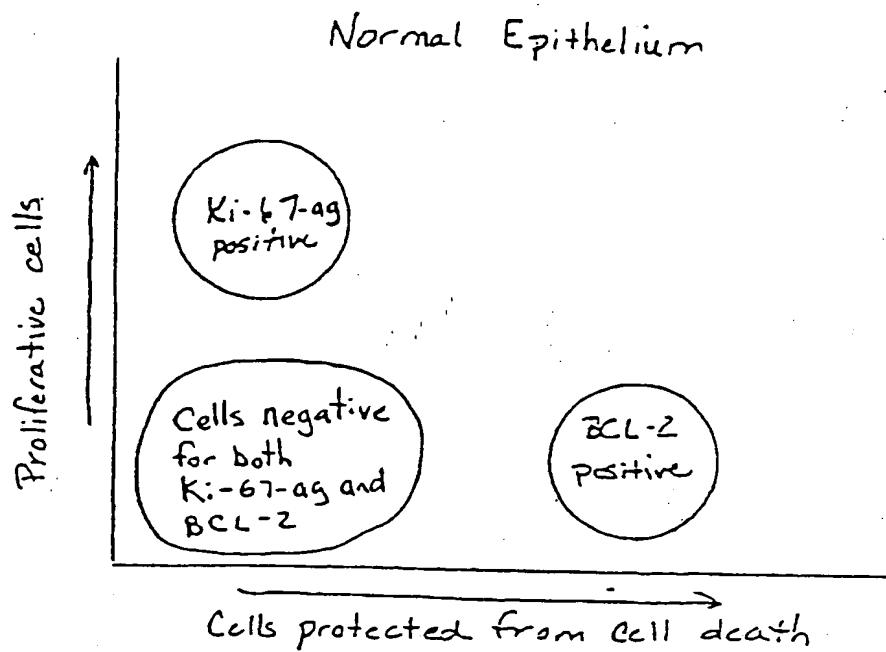 Normal Epithelium
Proliferative cells
Ki-67-ag
positive
Cells negative
for both
Ki-67-ag and
BCL-2
BCL-2
positive
Cells protected from cell death